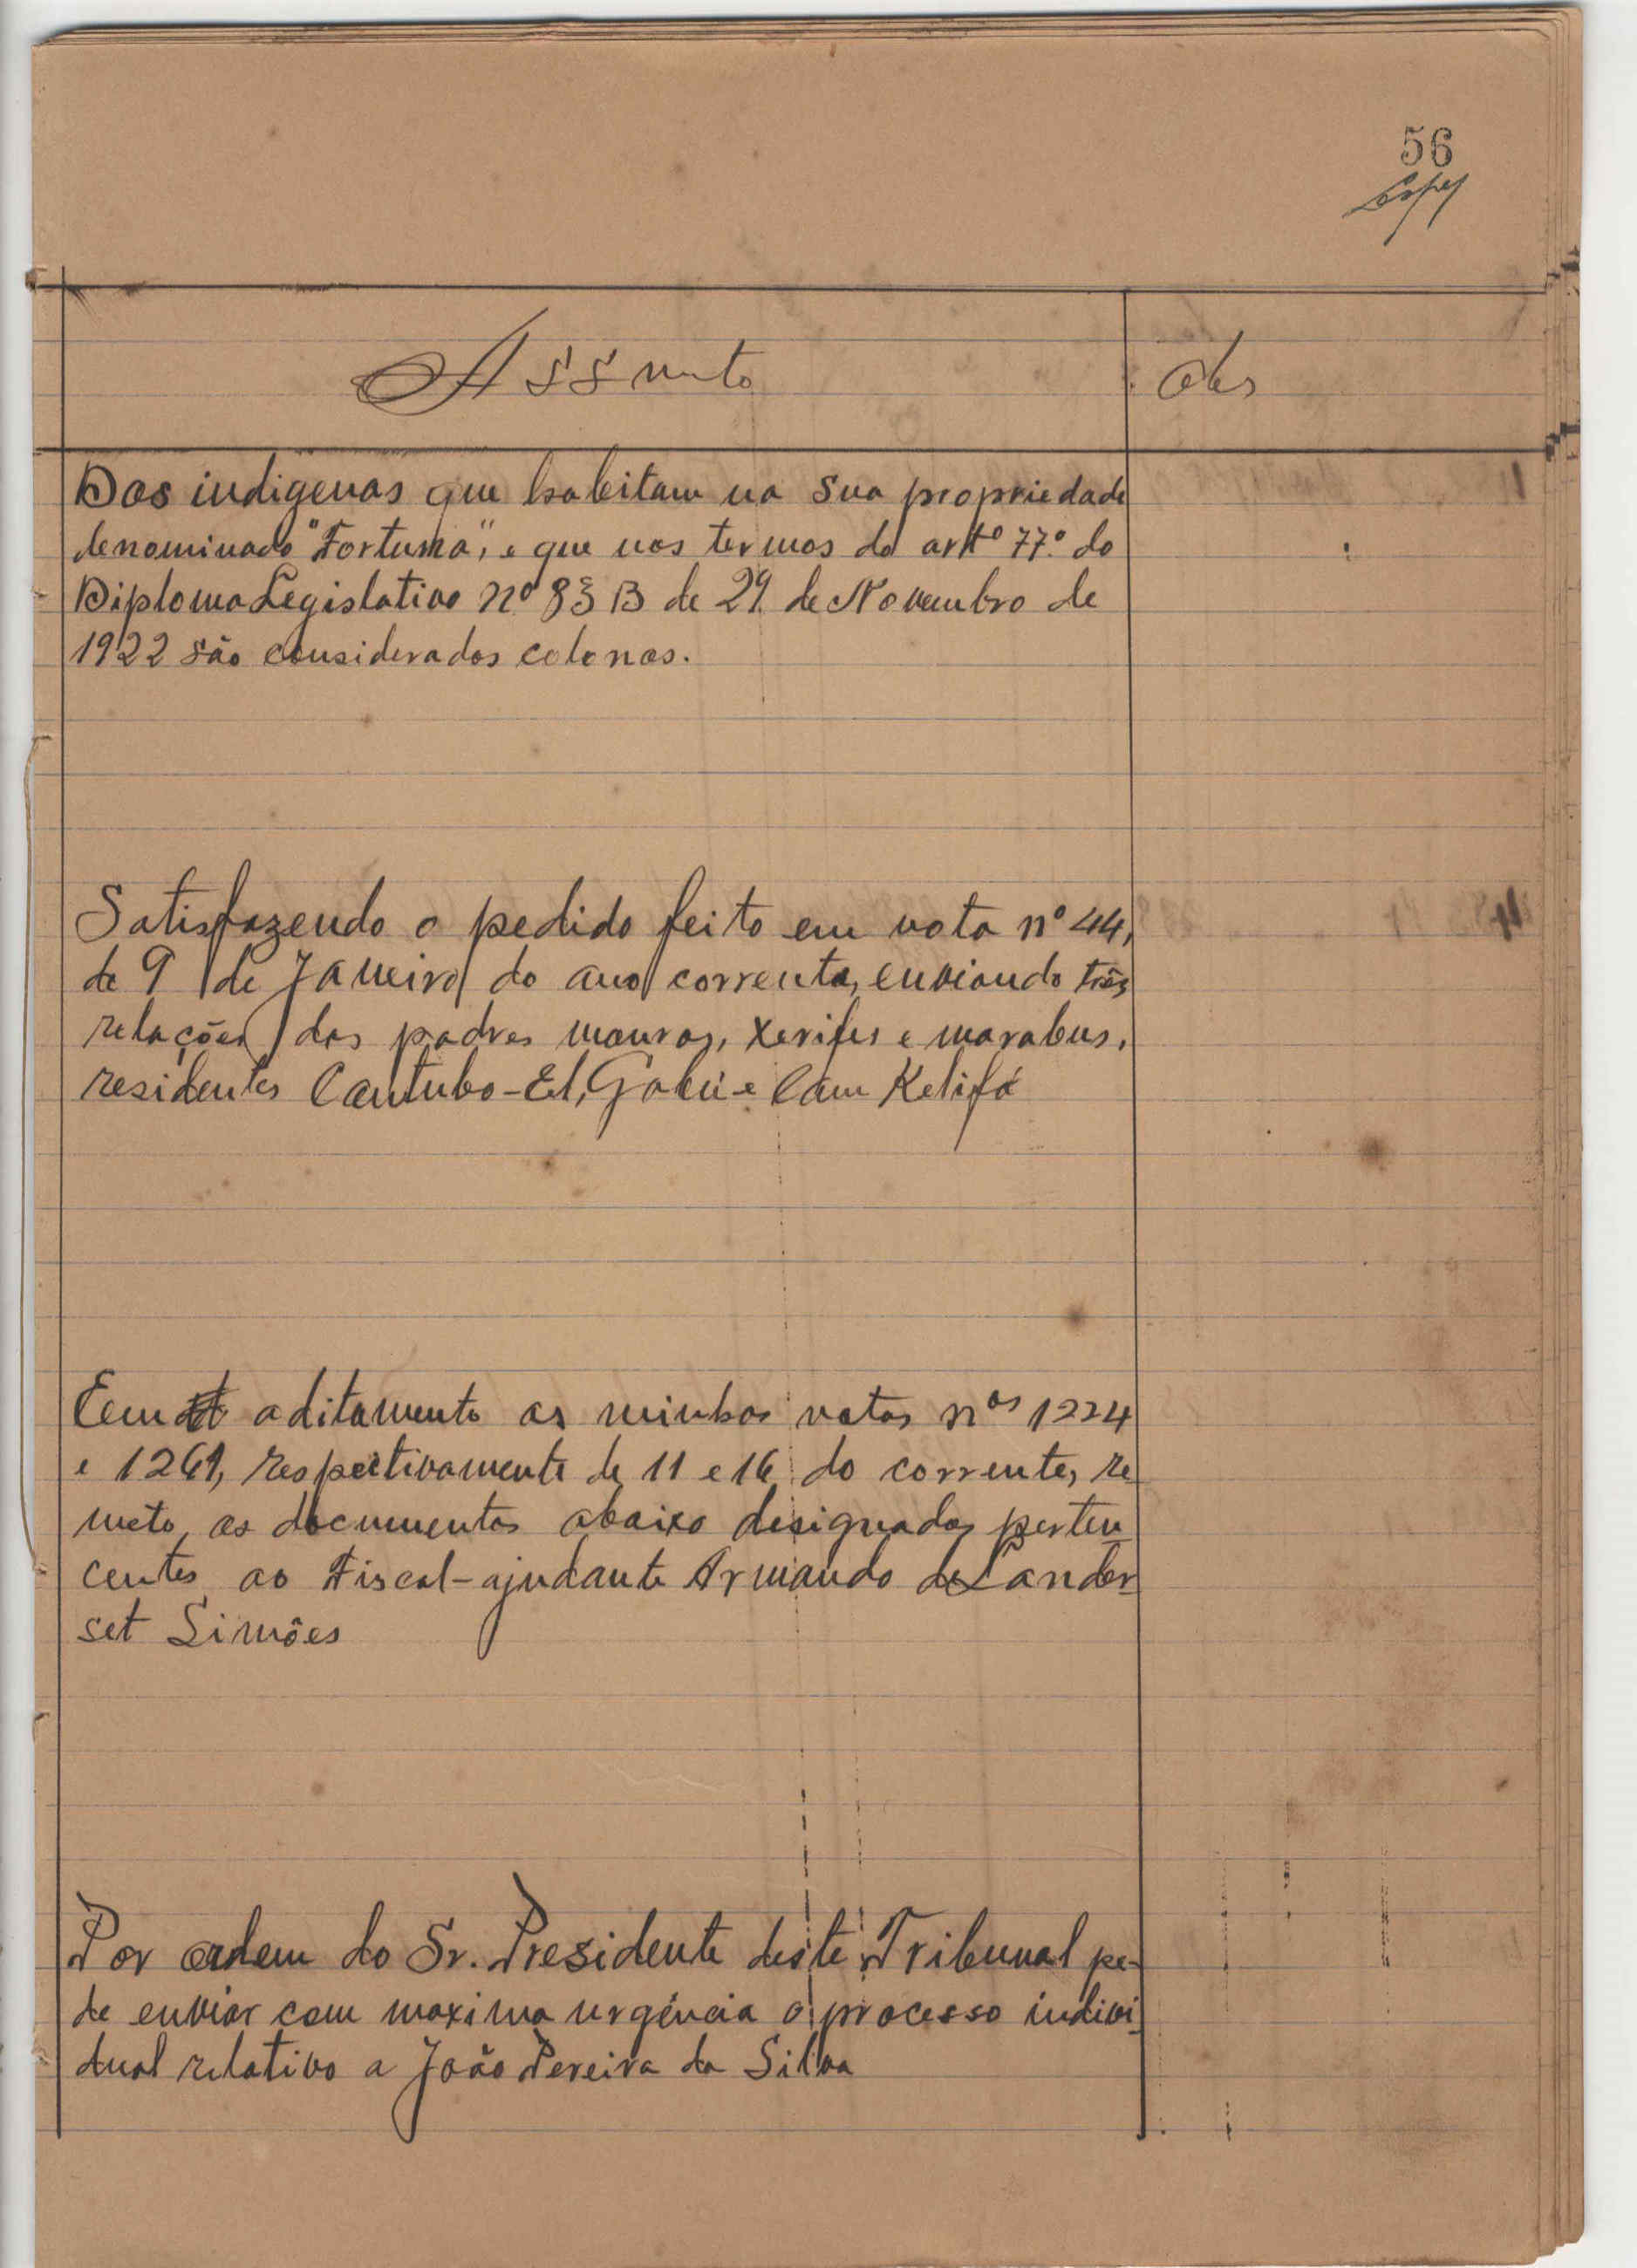 56
Assunto
Obs
Dos indigenas que habitam na sua propriedade
denominado "Fortuna", e que nos termos do artº 77º do
Diploma Legislativo nº 83 B de 29 de Novembro de
1922 são considerados colonos.
Satisfazendo o pedido feito em nota nº 44,
de 9 de Janeiro do ano corrente, enviando três
relações dos padres mouros, xerifes e marabus,
residentes Cantubo-El, Gabú e Cam Kelifá
Em aditamento as minhas notas nos 1224
e 1261, respectivamente de 11 e 16 do corrente, re
meto, os documentos abaixo designados perten
centes ao Fiscal-ajudante Armando de Lander
set Simões
Por ordem do Sr. Presidente deste Tribunal pe-
de enviar com maxima urgência o processo indivi
dual relativo a João Pereira da Silva